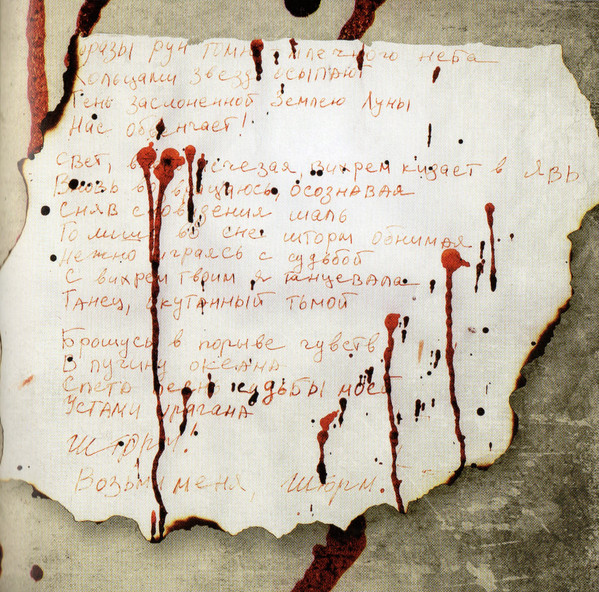 рун млечного неба
Кольцами звезд осыпают
Тень заслоненной Землею Луны
Нас обвенчает!
Свет, исчезая, вихрем кидает в явь
Вновь возвращаюсь, осознавая
Сняв сновидения шаль
То лишь во сне шторм обнимая
Нежно играясь с судьбой
С вихрем твоим я танцевала
Танец, окутанный тьмой
Брошусь в порыве чувств
В пучину океана
Спета песнь судьбы моей
Устами урагана
Шторм!
Возьми меня, Шторм!